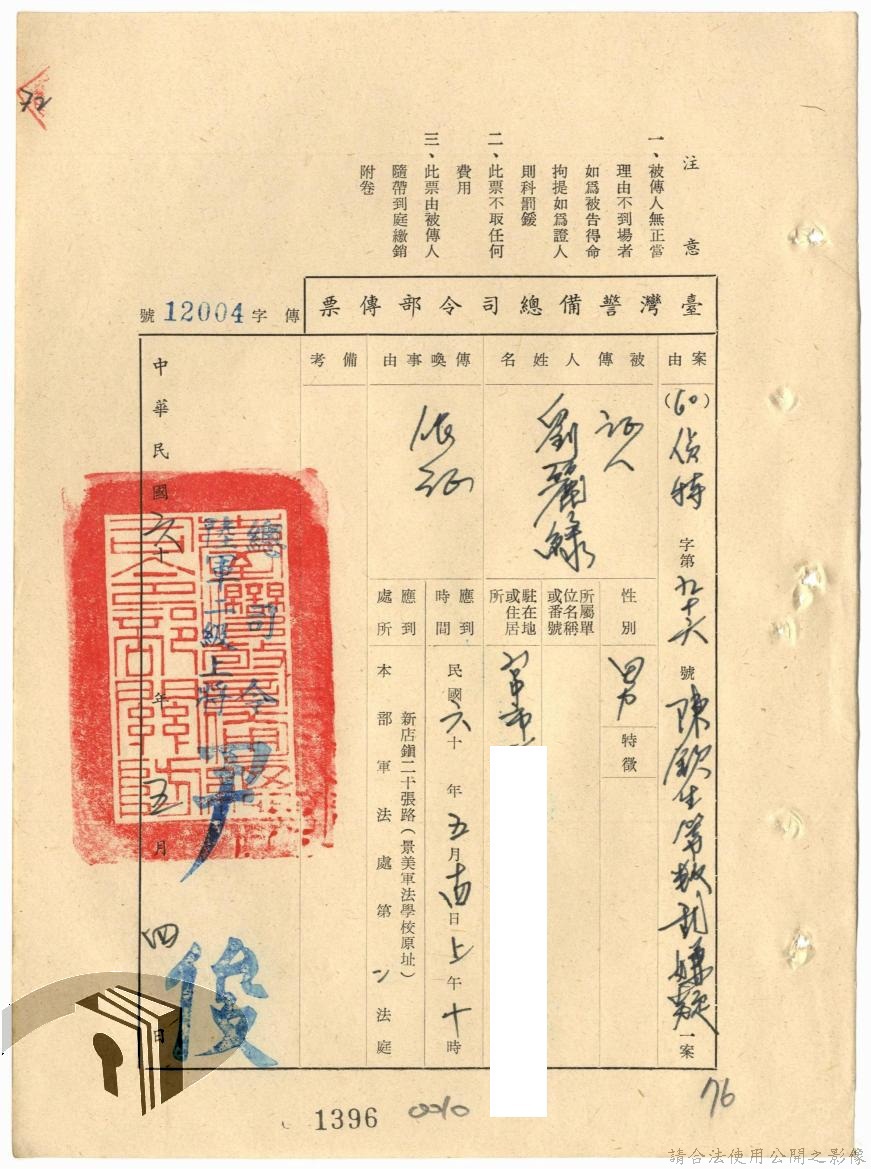 注意
一、被傳人無正當
理由不到場者
如爲被告得命
拘提如爲證人
則科罰鍰
二、此票不取任何
費用
三、此票由被傳人
隨帶到庭繳銷
附卷
臺灣警備總司令部傳票
傳字12004號
案由
(60)偵特字第九十六號陳欽生等叛亂嫌疑一案
被傳人姓名
証人
劉麗綠
性別
男
特徵
所屬單
位名稱
或番號
駐在地
或住居
所
傳喚事由
作証
應到
時間
民國六十年五月 日上午十時
應到
處所
新店鎮二十張路(景美軍法學校原址)
本部軍法處第二法庭
備考
總司令
陸軍二級上將
尹俊
中華民國六十年五月四日
1396
0010
76
請合法使用公開之影像